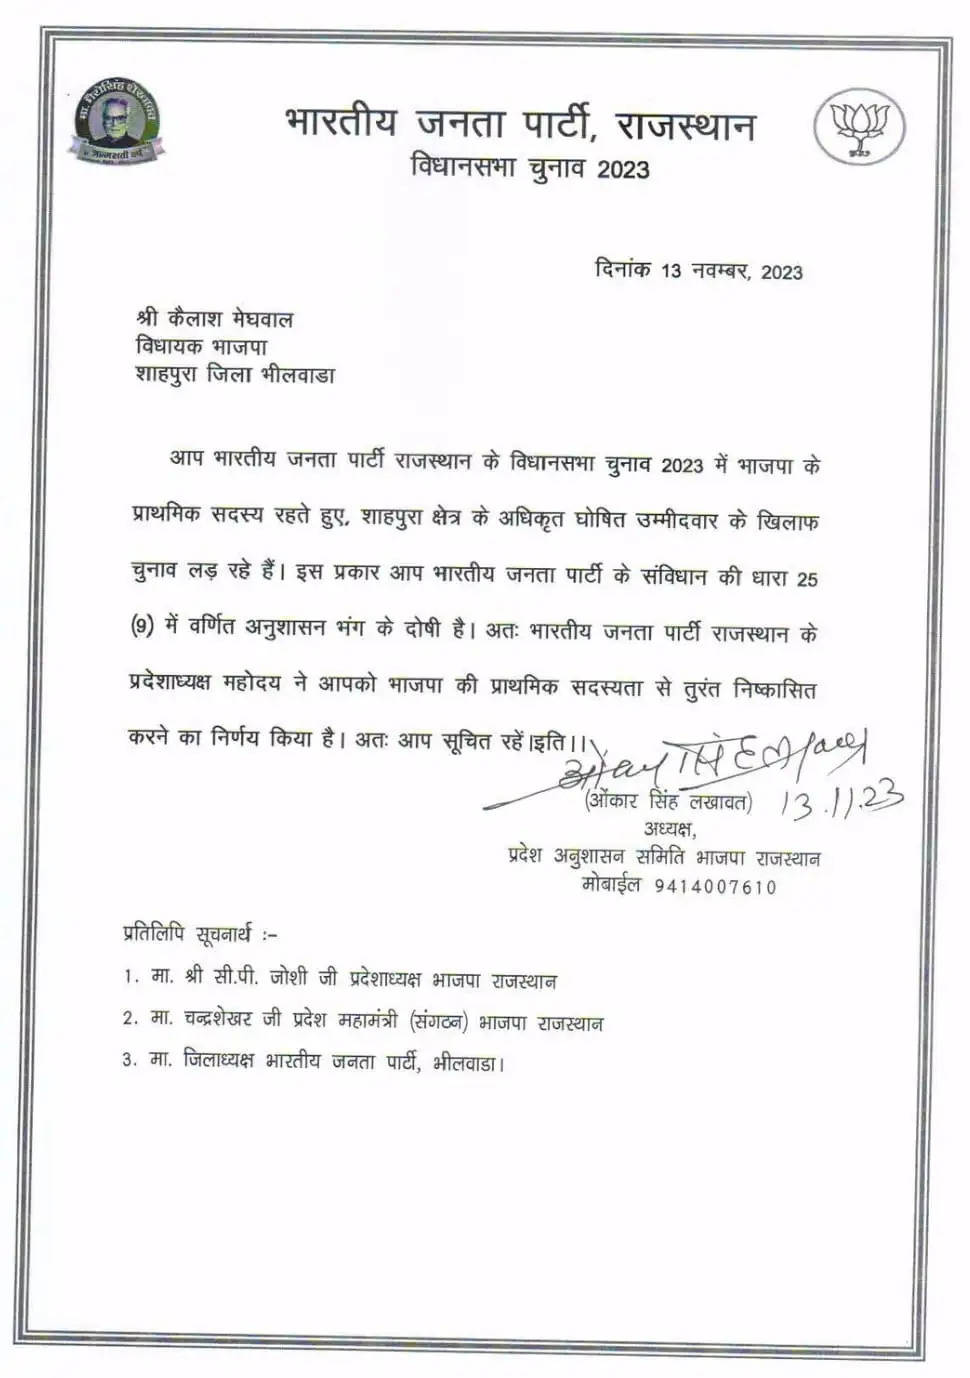 मा. भैरोंसिंह शेखावत
जन्मशती वर्ष
भारतीय जनता पार्टी, राजस्थान
विधानसभा चुनाव 2023
दिनांक 13 नवम्बर, 2023
श्री कैलाश मेघवाल
विधायक भाजपा
शाहपुरा जिला भीलवाडा
आप भारतीय जनता पार्टी राजस्थान के विधानसभा चुनाव 2023 में भाजपा के
प्राथमिक सदस्य रहते हुए, शाहपुरा क्षेत्र के अधिकृत घोषित उम्मीदवार के खिलाफ
चुनाव लड़ रहे हैं। इस प्रकार आप भारतीय जनता पार्टी के संविधान की धारा 25
(9) में वर्णित अनुशासन भंग के दोषी है। अतः भारतीय जनता पार्टी राजस्थान के
प्रदेशाध्यक्ष महोदय ने आपको भाजपा की प्राथमिक सदस्यता से तुरंत निष्कासित
करने का निर्णय किया है। अतः आप सूचित रहें।इति।।
(ओंकार सिंह लखावत) 13.11.23
अध्यक्ष,
प्रदेश अनुशासन समिति भाजपा राजस्थान
मोबाईल 9414007610
प्रतिलिपि सूचनार्थ :–
1. मा. श्री सी.पी. जोशी जी प्रदेशाध्यक्ष भाजपा राजस्थान
2. मा. चन्द्रशेखर जी प्रदेश महामंत्री (संगटन) भाजपा राजस्थान
3. मा. जिलाध्यक्ष भारतीय जनता पार्टी, भीलवाडा।